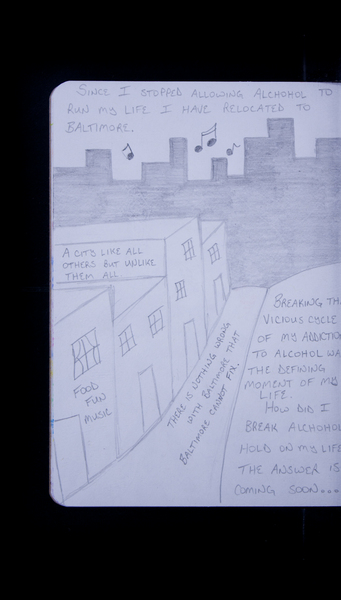 SINCE I STOPPED ALLOWING ALCHOHOL TO
RUN MY LIFE I HAVE RELOCATED TO
BALTIMORE.
A CITY LIKE ALL
OTHERS BUT UNLIKE
THEM ALL
FOOD
FUN
MUSIC
THERE IS NOTHING WRONG
WITH BALTIMORE THAT
BALTIMORE CANNOT FIX.
BREAKING TH
VICIOUS CYCLE
OF MY ADDICTION
TO ALCOHOL WA
THE DEFINING
MOMENT OF MY
LIFE.
HOW DID I
BREAK ALCHOHOL
HOLD ON MY LIFE
THE ANSWER IS
COMING SOON...